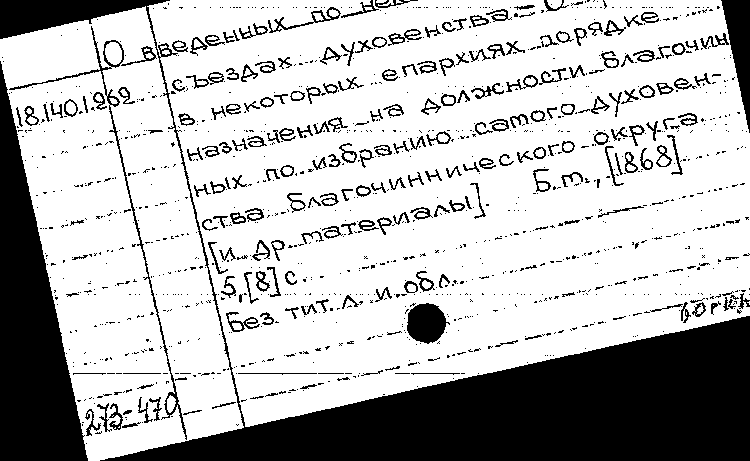 О введенных по
съездах духовенства = О
18.140.1.969
в некоторых епархиях порядке
назначения на должности благочин
ных по избранию самого духовен-
ства благочиннического округа.
[и др. материалы]. Б.т., [1868]
5,[8] с.
Без тит. л. и обл.
273-470